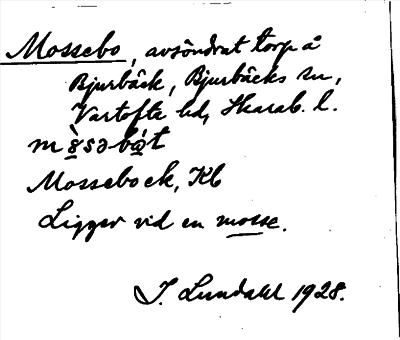 Mossebo, avsöndrat torp å
Bjurbäck, Bjurbäcks sn,
Vartofta hd, Skarab. l.
Mossebo ek, Kb
Ligger vid en mosse.
J. Lundahl 1928.